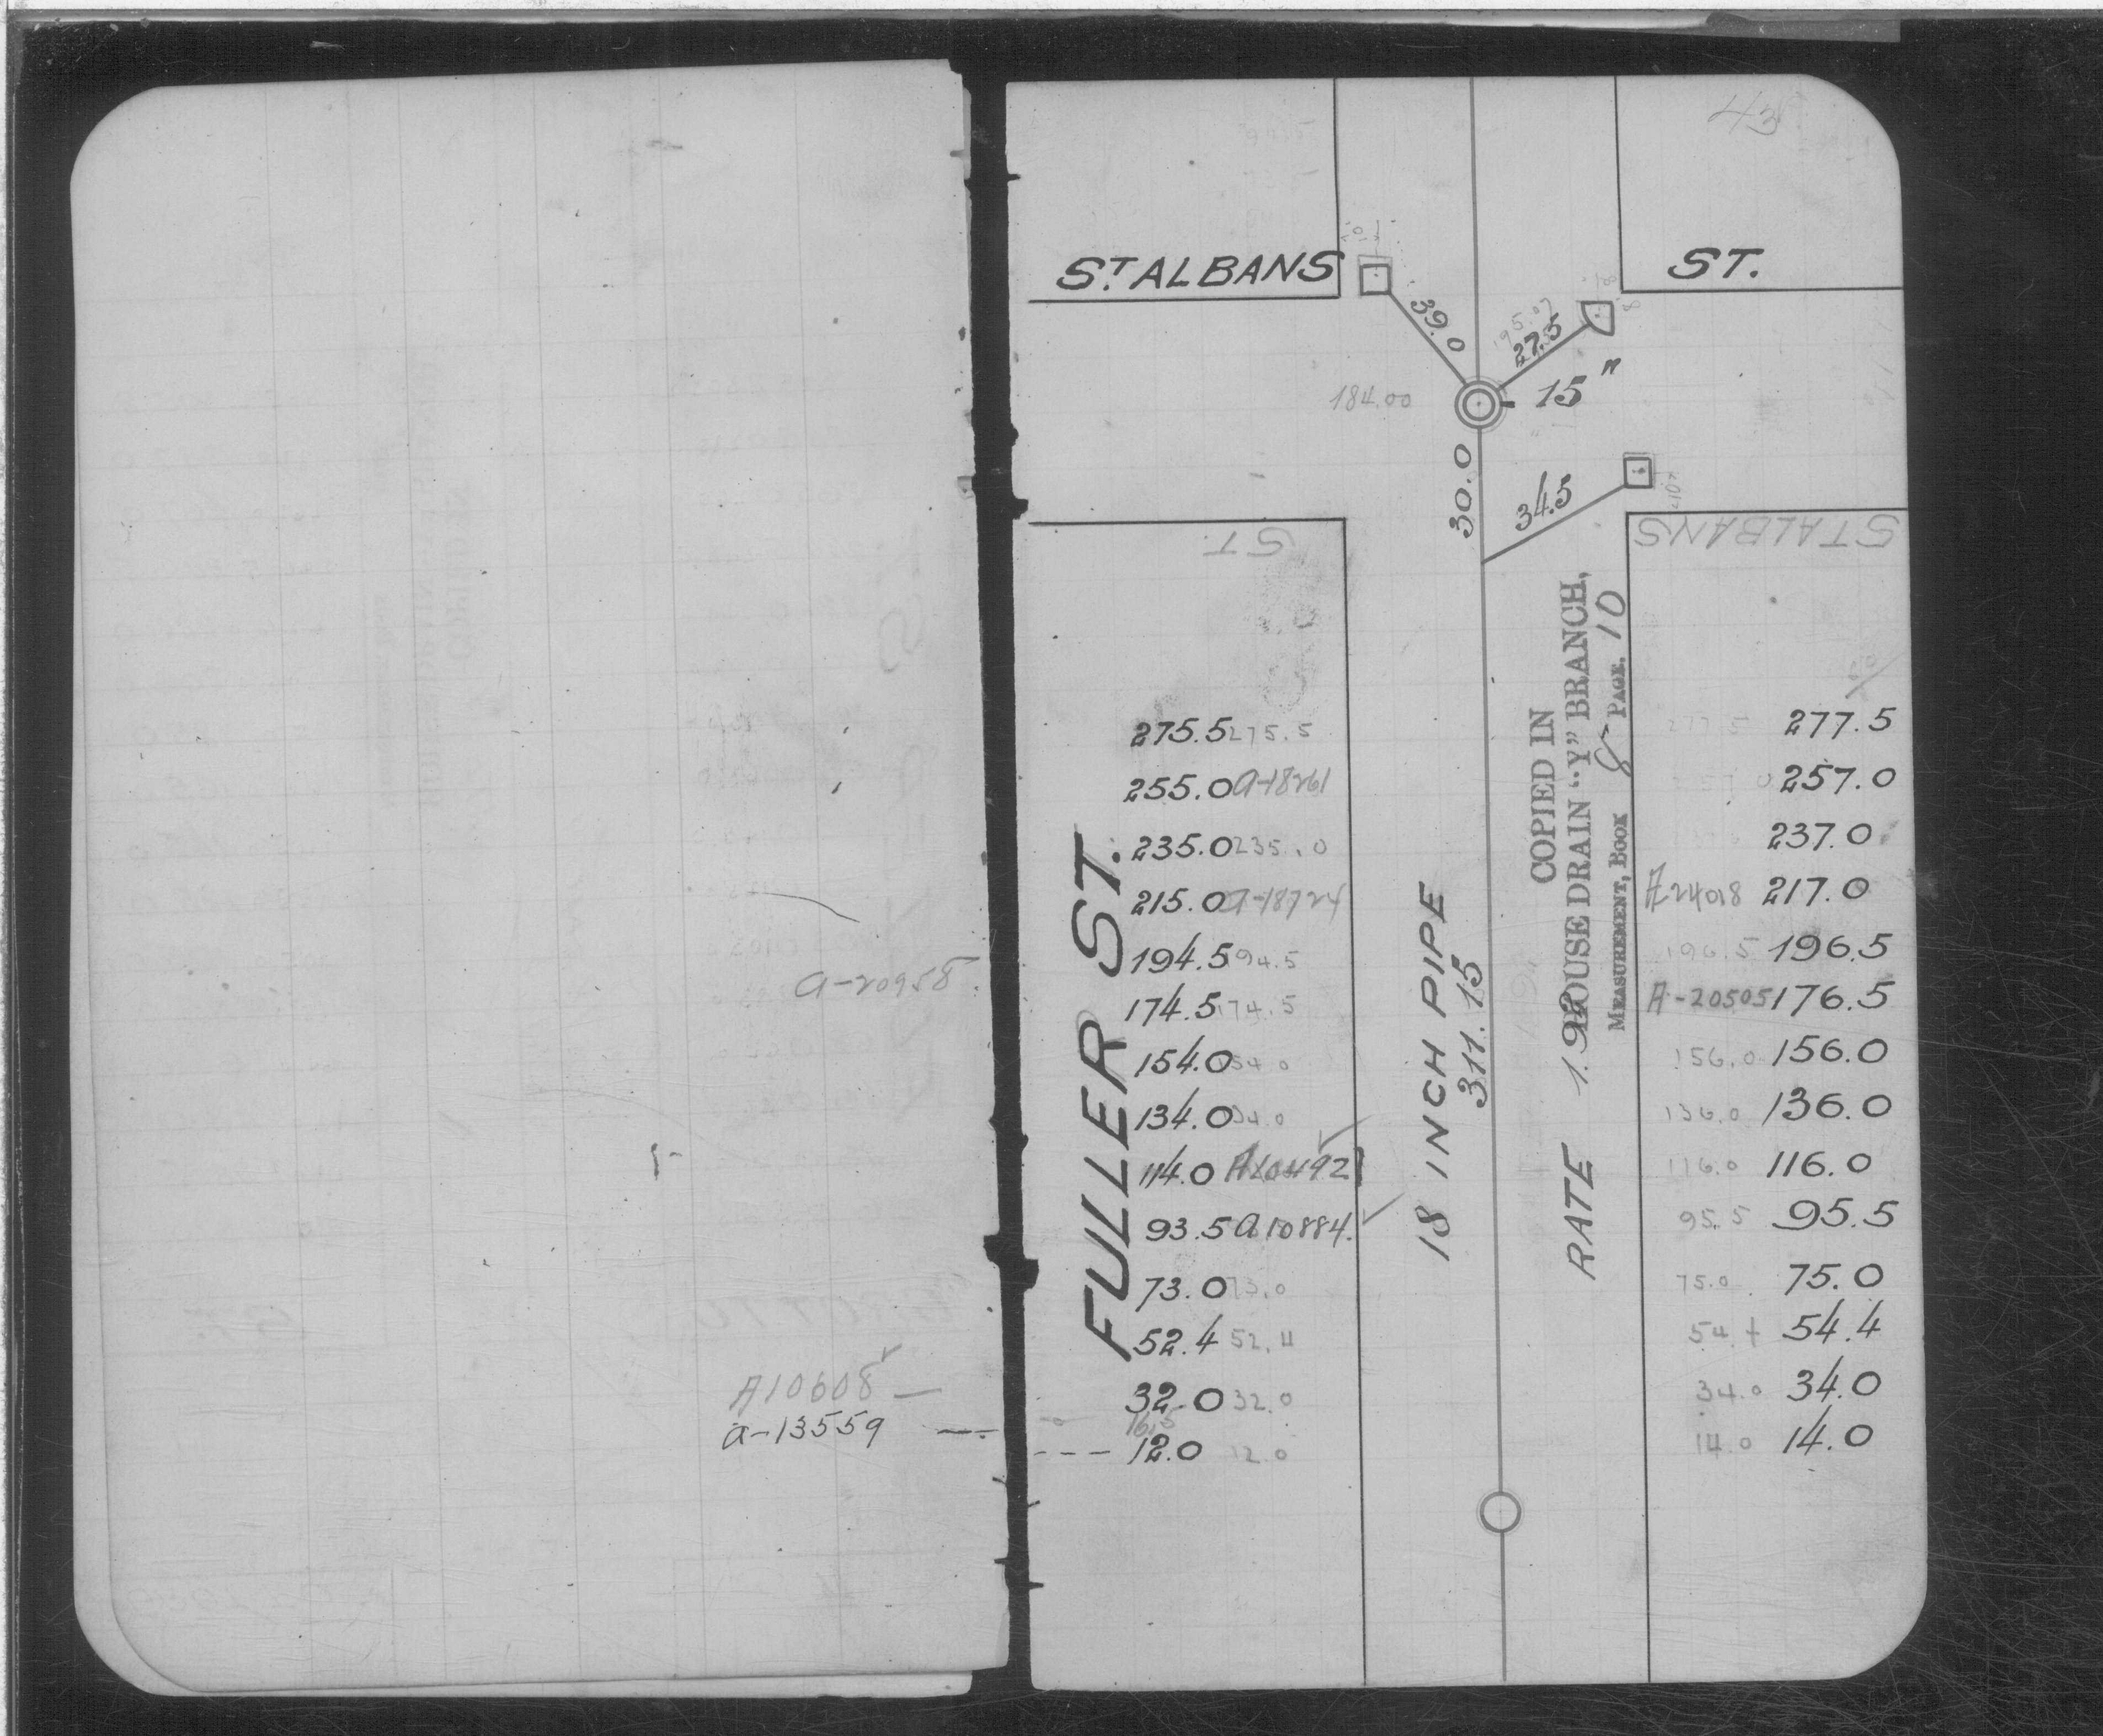 a-20958
A10608
a-13559
43
ST. ALBANS ST.
39.0
27.5
195.07
184.00
15"
30.0
34.5
ST.
ST ALBANS
FULLER ST.
275.5 275.5
255.0 a-18261
235.0 235.0
215.0 a-18724
194.5 194.5
174.5 174.5
154.0 154.0
134.0 134.0
114.0 A10492
93.5 a10884.
73.0 73.0
52.4 52.4
32.0 32.0
16.5
12.0 12.0
18 INCH PIPE
311.15
RATE 1.92
COPIED IN
HOUSE DRAIN "Y" BRANCH,
MEASUREMENT, BOOK 8 PAGE. 10
277.5 277.5
257.0
237.0
A24018 217.0
196.5 196.5
A-20505 176.5
156.0 156.0
136.0 136.0
116.0 116.0
95.5 95.5
75.0 75.0
54.4 54.4
34.0 34.0
14.0 14.0